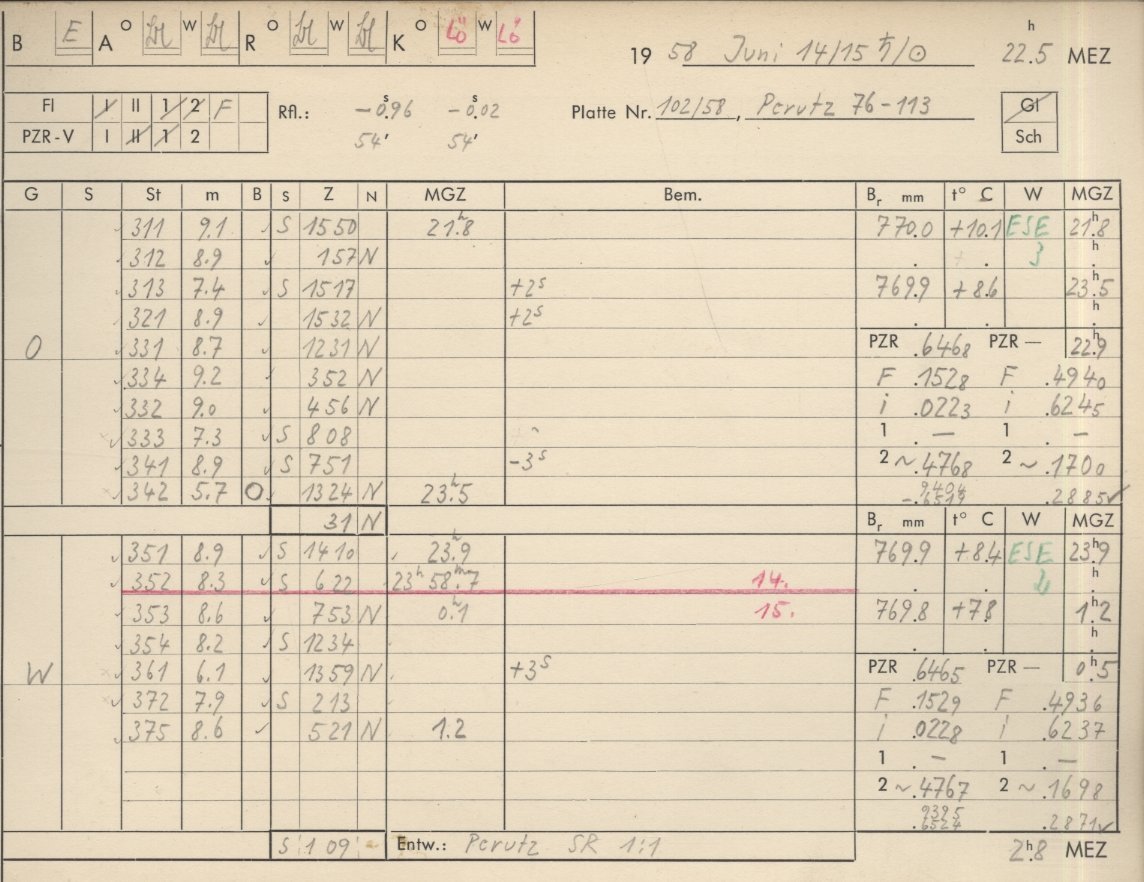 B E A O W R O W K O Lö W Lö
19 58 Juni 14/15 ♄/☉ 22.5 h MEZ
Fl I II 1 2 F
PZR-V I II 1 2
Rfl.: -0.96 s -0.02 s
54' 54'
Platte Nr. 102/58, Perutz 76-113
Gl
Sch
G S St m B S Z N MGZ Bem. Br mm t° C W MGZ
311 9.1 S 1550 21.8 h 770.0 +10.1 ESE 21.8 h
312 8.9 157 N 3 h
313 7.4 S 1517 +2s 769.9 +8.6 23.5 h
321 8.9 1532 N +2s h
O 331 8.7 1231 N PZR .6468 PZR — 22.9 h
334 9.2 352 N F .1528 F .4940
332 9.0 456 N i .0223 i .6245
333 7.3 S 808 1 . — 1 . —
341 8.9 S 751 -3s 2 ~ .4768 2 ~ .1700
342 5.7 O 1324 N 23.5 h .9404
-.6519 .2885 ✓
31 N Br mm t° C W MGZ
351 8.9 S 1410 23.9 h 769.9 +8.4 ESE 23.9 h
352 8.3 S 622 23h 58m.7 14. h
353 8.6 753 N 0.1 h 15. 769.8 +7.8 1.2 h
354 8.2 S 1234 h
W 361 6.1 1359 N +3s PZR .6465 PZR — 0.5 h
372 7.9 S 213 F .1529 F .4936
375 8.6 521 N 1.2 i .0228 i .6237
1 . — 1 . —
2 ~ .4767 2 ~ .1698
.9395
.6524 .2871 ✓
S 1 09 Entw.: Perutz SR 1:1 2.8 h MEZ